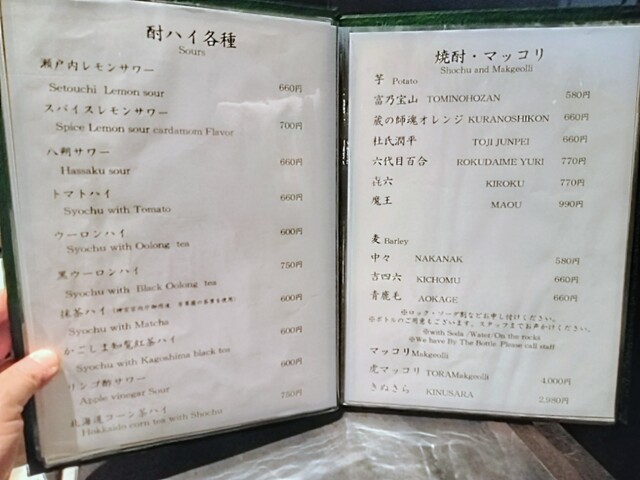 酎ハイ各種
Sours
瀬戸内レモンサワー
Setouchi Lemon sour 660円
スパイスレモンサワー
Spice Lemon sour cardamom Flavor 700円
八朔サワー
Hassaku sour 660円
トマトハイ
Syochu with Tomato 660円
ウーロンハイ
Syochu with Oolong tea 600円
黒ウーロンハイ
Syochu with Black Oolong tea 750円
抹茶ハイ
Syochu with Matcha 600円
かごしま知覧紅茶ハイ
Syochu with Kagoshima black tea 600円
リンゴ酢サワー
Apple vinegar Sour 600円
北海道コーン茶ハイ
Hokkaido corn tea with Shochu 750円
焼酎・マッコリ
Shochu and Makgeolli
芋 Potato
富乃宝山 TOMINOHOZAN 580円
蔵の師魂オレンジ KURANOSHIKON 660円
杜氏潤平 TOJI JUNPEI 660円
六代目百合 ROKUDAIME YURI 770円
㐂六 KIROKU 770円
魔王 MAOU 990円
麦 Barley
中々 NAKANAK 580円
吉四六 KICHOMU 660円
青鹿毛 AOKAGE 660円
※ロック・ソーダ割などお申し付けください。
※ボトルのご用意もございます。スタッフまでお声かけください。
※with Soda /Water/ On the rocks
※We have By The Bottle. Please call staff
マッコリMakgeolli
虎マッコリ TORAMakgeolli 4,000円
きぬさら KINUSARA 2,980円